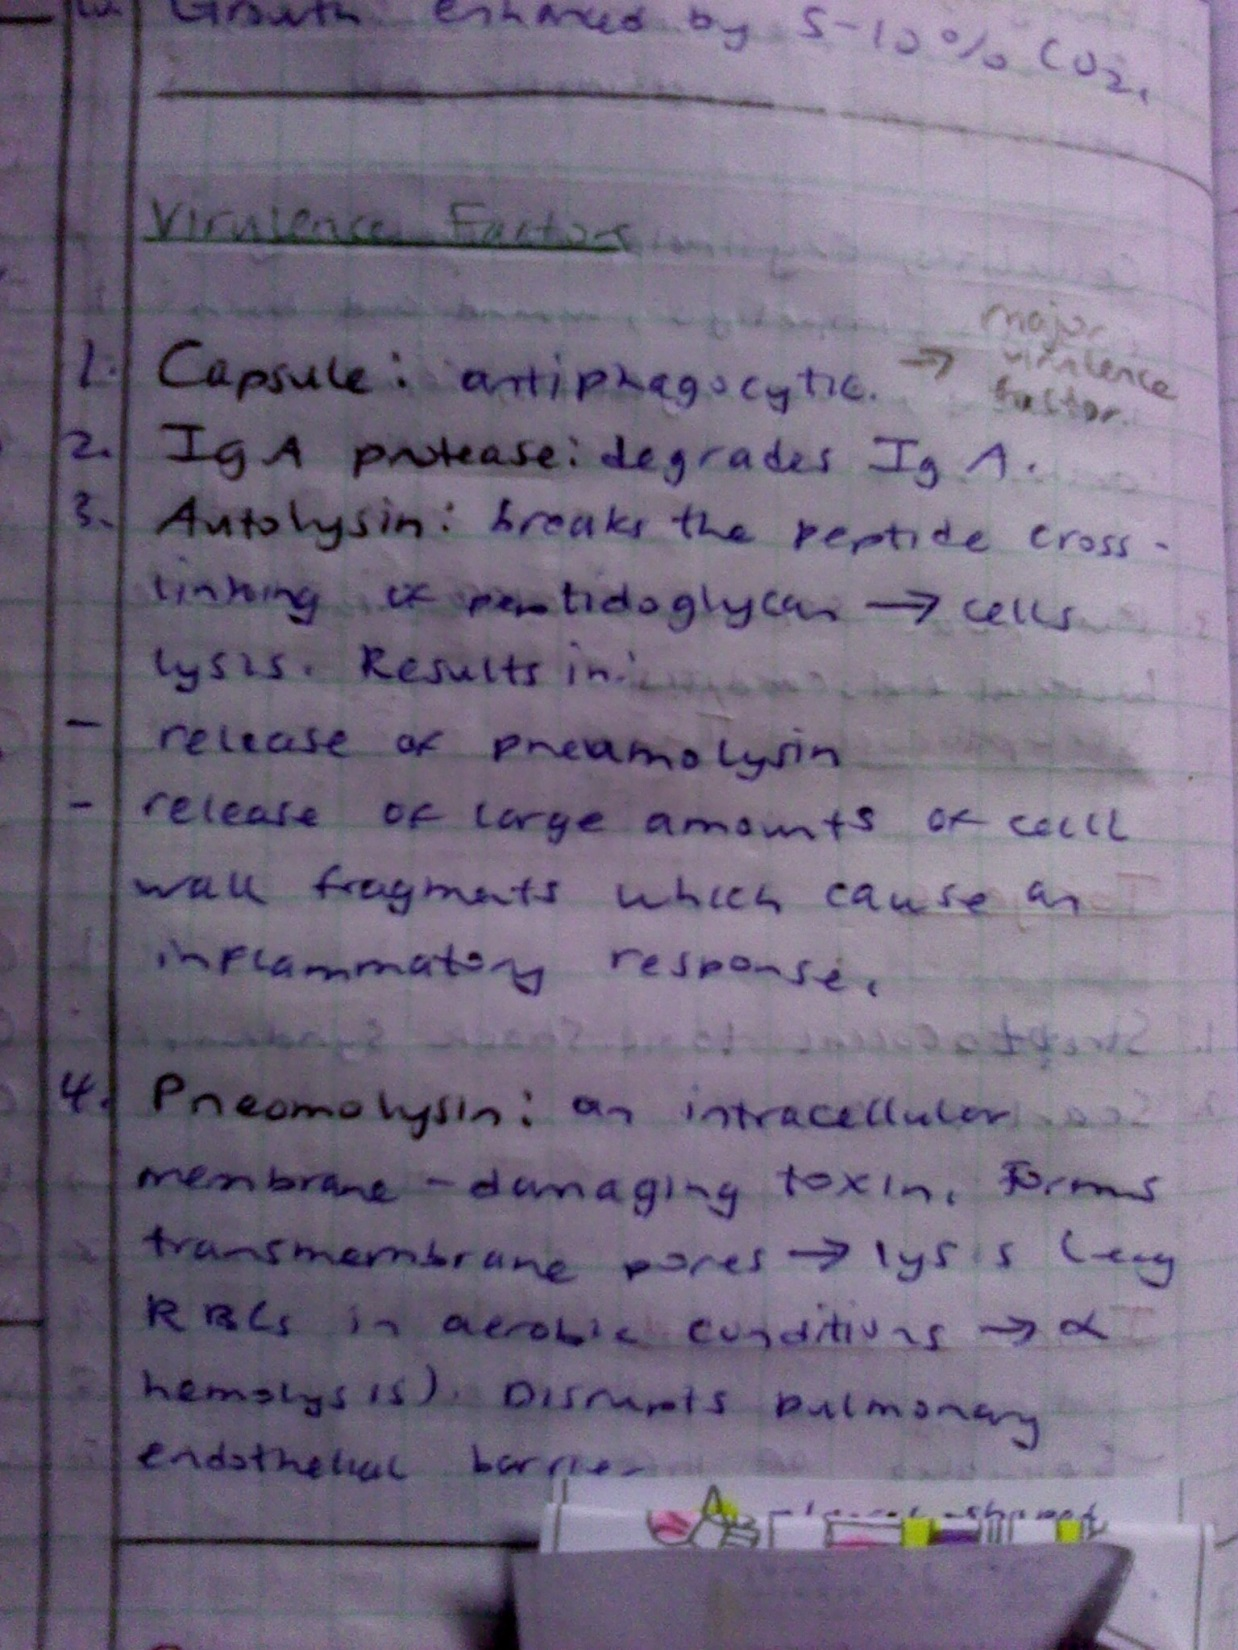 Growth enhanced by 5-10% CO2.
Virulence Factors
1. Capsule: antiphagocytic. → major
virulence
factor.
2. IgA protease: degrades IgA.
3. Autolysin: breaks the peptide cross-
linking of peptidoglycan → cells
lysis. Results in:
- release of pneamolysin
- release of large amounts of celll
wall fragments which cause an
inflammatory response.
4. Pneomolysin: an intracellular
membrane-damaging toxin. Forms
transmembrane pores → lysis (eg
RBCs in aerobic conditions → α
hemolysis). Disrupts pulmonary
endothelial barrier